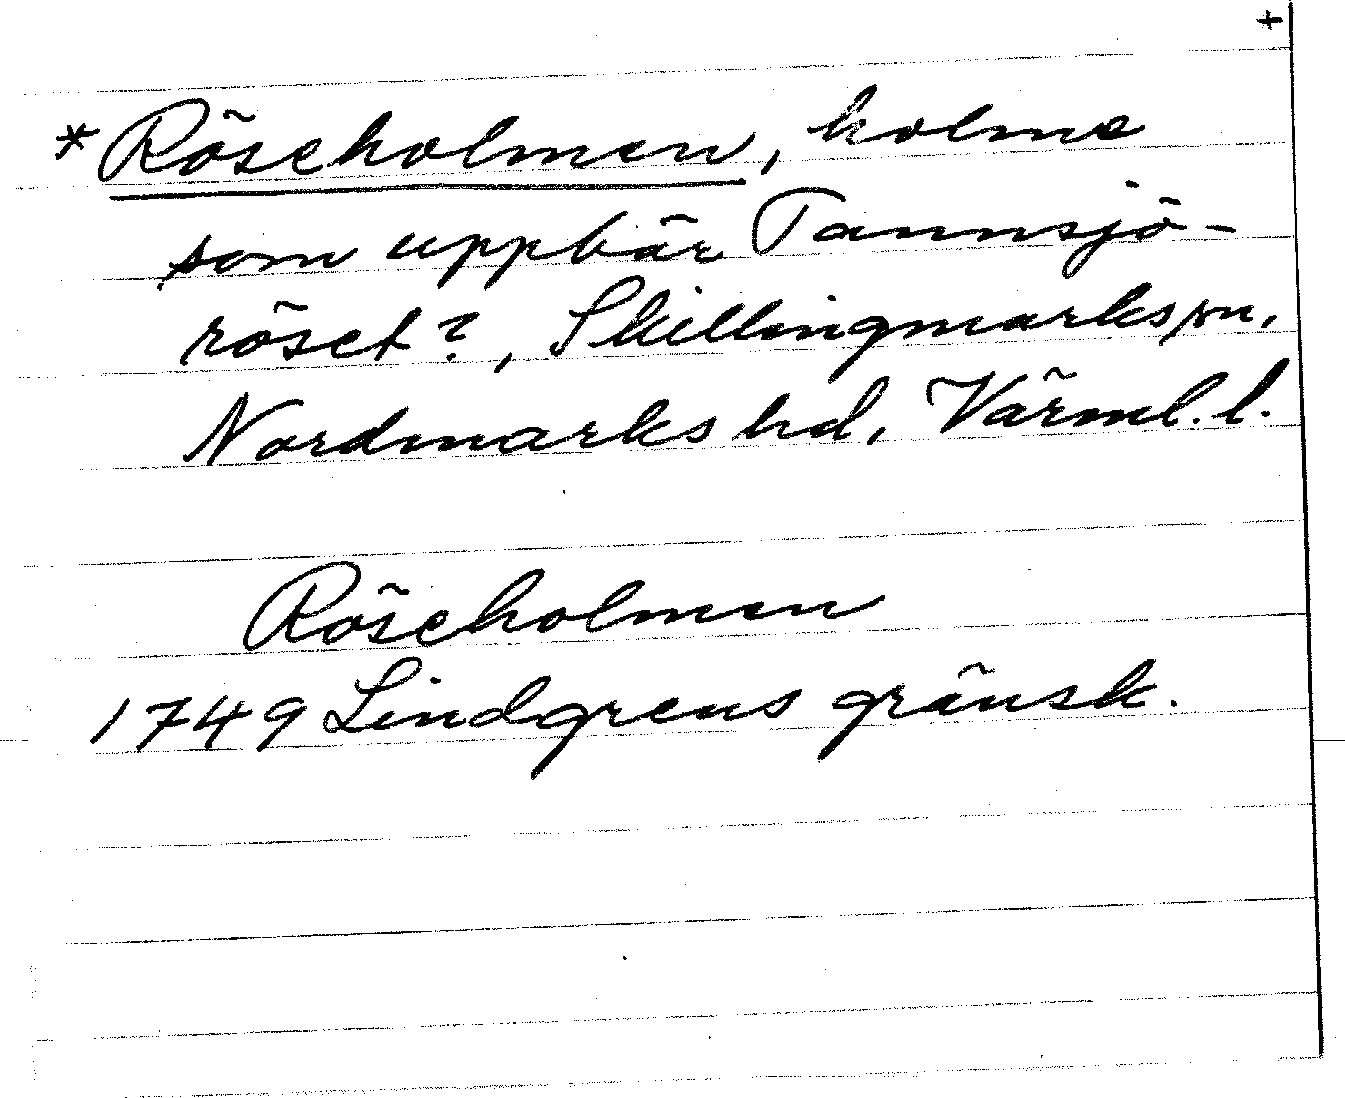 +
*Röseholmen, holme
som uppbär Tannsjö-
röset?, Skillingmarks sn,
Nordmarks hd, Värml. l.
Röseholmen
1749 Lindgrens gränsk.